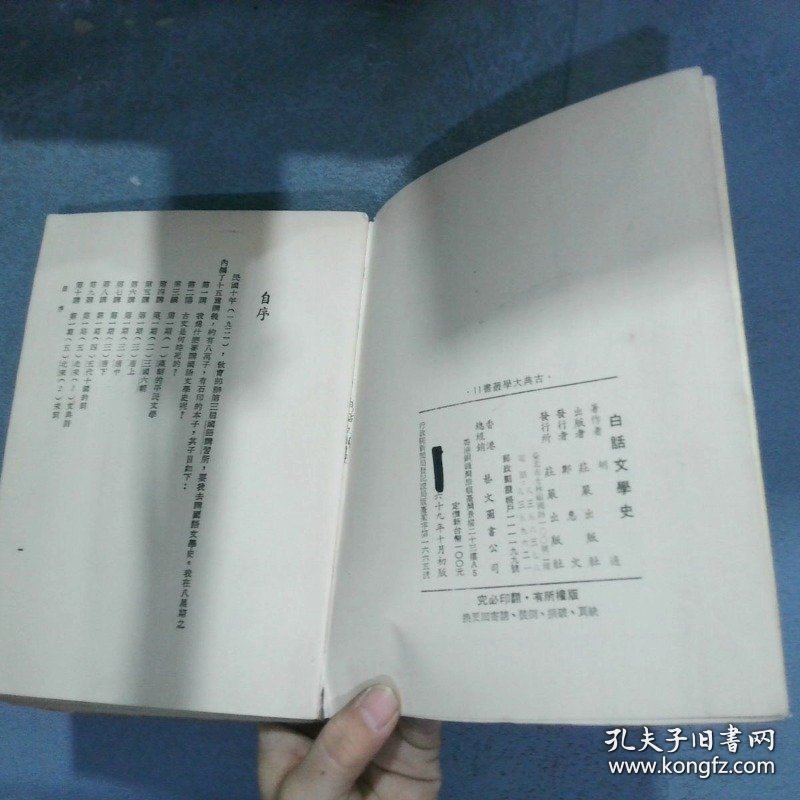 古典大學叢書11
白話文學史
著作者 胡 適
出版者 莊嚴出版社
發行者 鄭惠文
發行所 莊嚴出版社
香港
總經銷 藝文圖書公司
定價新台幣一〇〇元
六十九年十月初版
版權所有・翻印必究
自序
民國十年(一九二一),教育部辦第三屆國語講習所,要我去講國語文學史。我在八星期之
內編了十五篇講義,約有八萬字,有石印的本子,其子目如下:
第一講 我為什麼要講國語文學史呢?
第二講 古文是何時死的?
第三講 第一期(一)漢朝的平民文學
第四講 第一期(二)三國六朝
第五講 第一期(三)唐上
第六講 第一期(三)唐中
第七講 第一期(三)唐下
第八講 第一期(四)五代十國的詞
第九講 第一期(五)北宋(1)文與詩
第十講 第一期(五)北宋(2)宋詞
自 序
孔夫子旧书网
www.kongfz.com